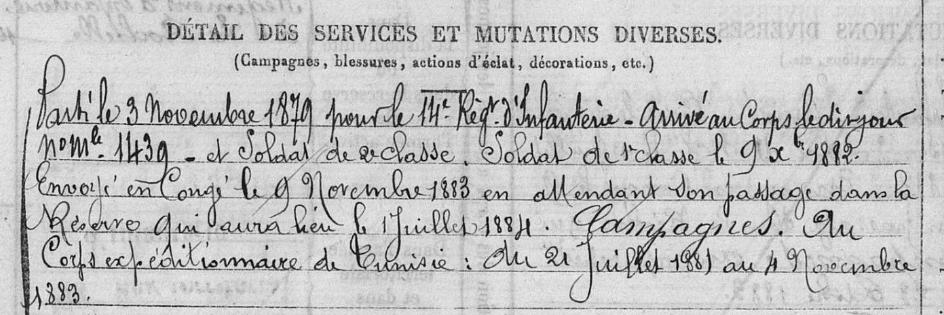 DÉTAIL DES SERVICES ET MUTATIONS DIVERSES.
(Campagnes, blessures, actions d'éclat, décorations, etc.)
Parti le 3 Novembre 1879 pour le 14e Régt d'Infanterie - Arrivé au Corps le dit jour
no mle 1439 - et Soldat de 2e classe. Soldat de 1e classe le 9 xbre 1882.
Envoyé en Congé le 9 Novembre 1883 en attendant son passage dans la
Réserve qui aura lieu le 1 Juillet 1884. Campagnes. Au
Corps expéditionnaire de Tunisie : du 21 Juillet 1881 au 4 Novembre
1883.